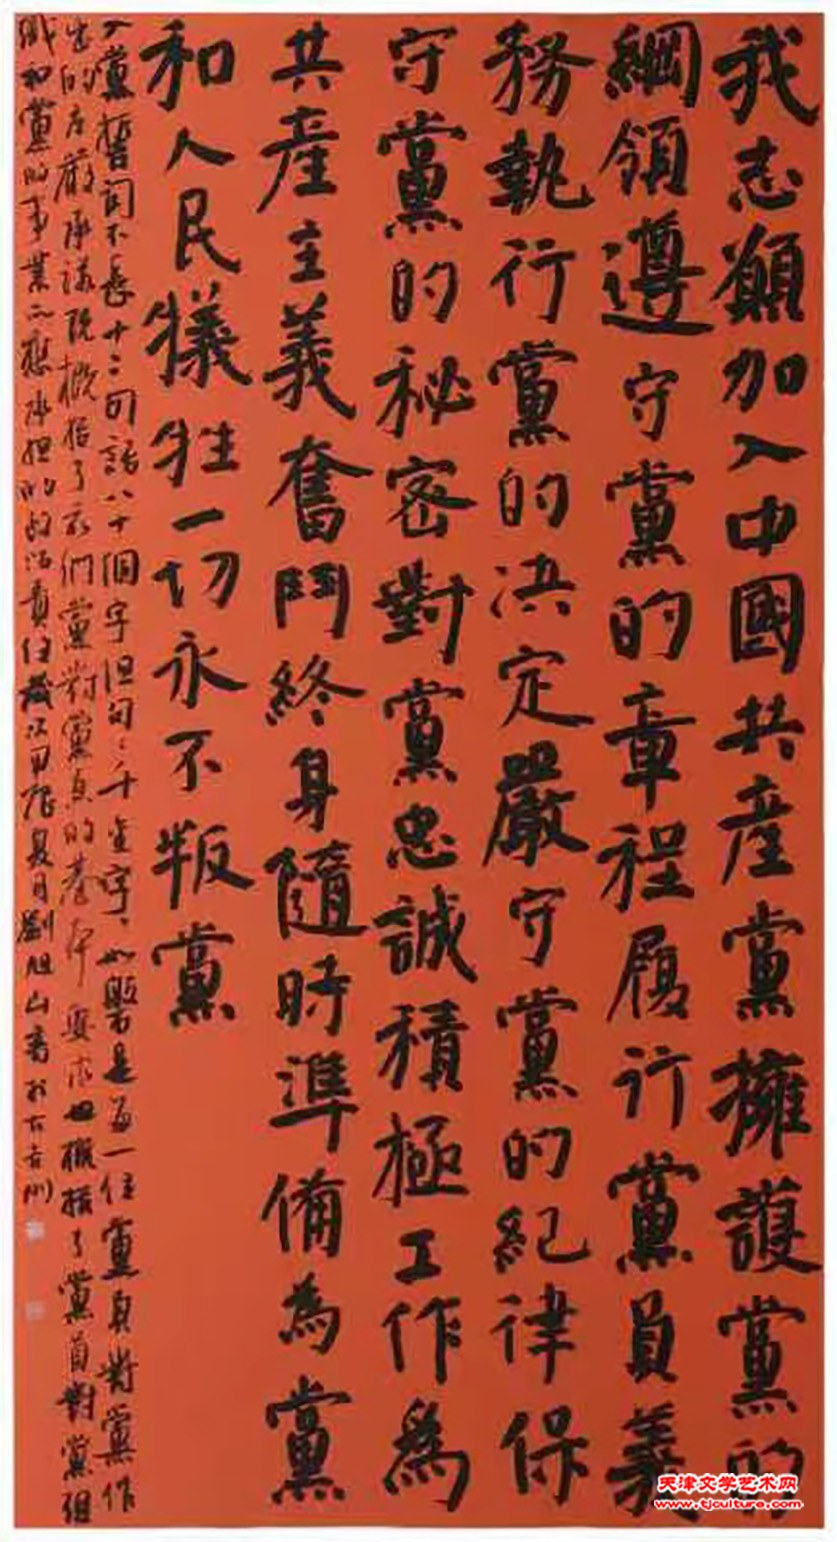 我志願加入中國共產黨擁護黨的
綱領遵守黨的章程履行黨員義
務執行黨的決定嚴守黨的紀律保
守黨的秘密對黨忠誠積極工作為
共產主義奮鬥終身隨時準備為黨
和人民犧牲一切永不叛黨
入黨誓詞不長十二句話八十個字但句〻千金字〻如磐石是每一位黨員對黨作
出的庄嚴承諾既概括了我們黨對黨員的基本要求也概括了黨員對黨組
織和黨的事業所應承担的政治責任歲次甲辰夏月劉旭山書於古青州
天津文学艺术网
www.tjculture.com